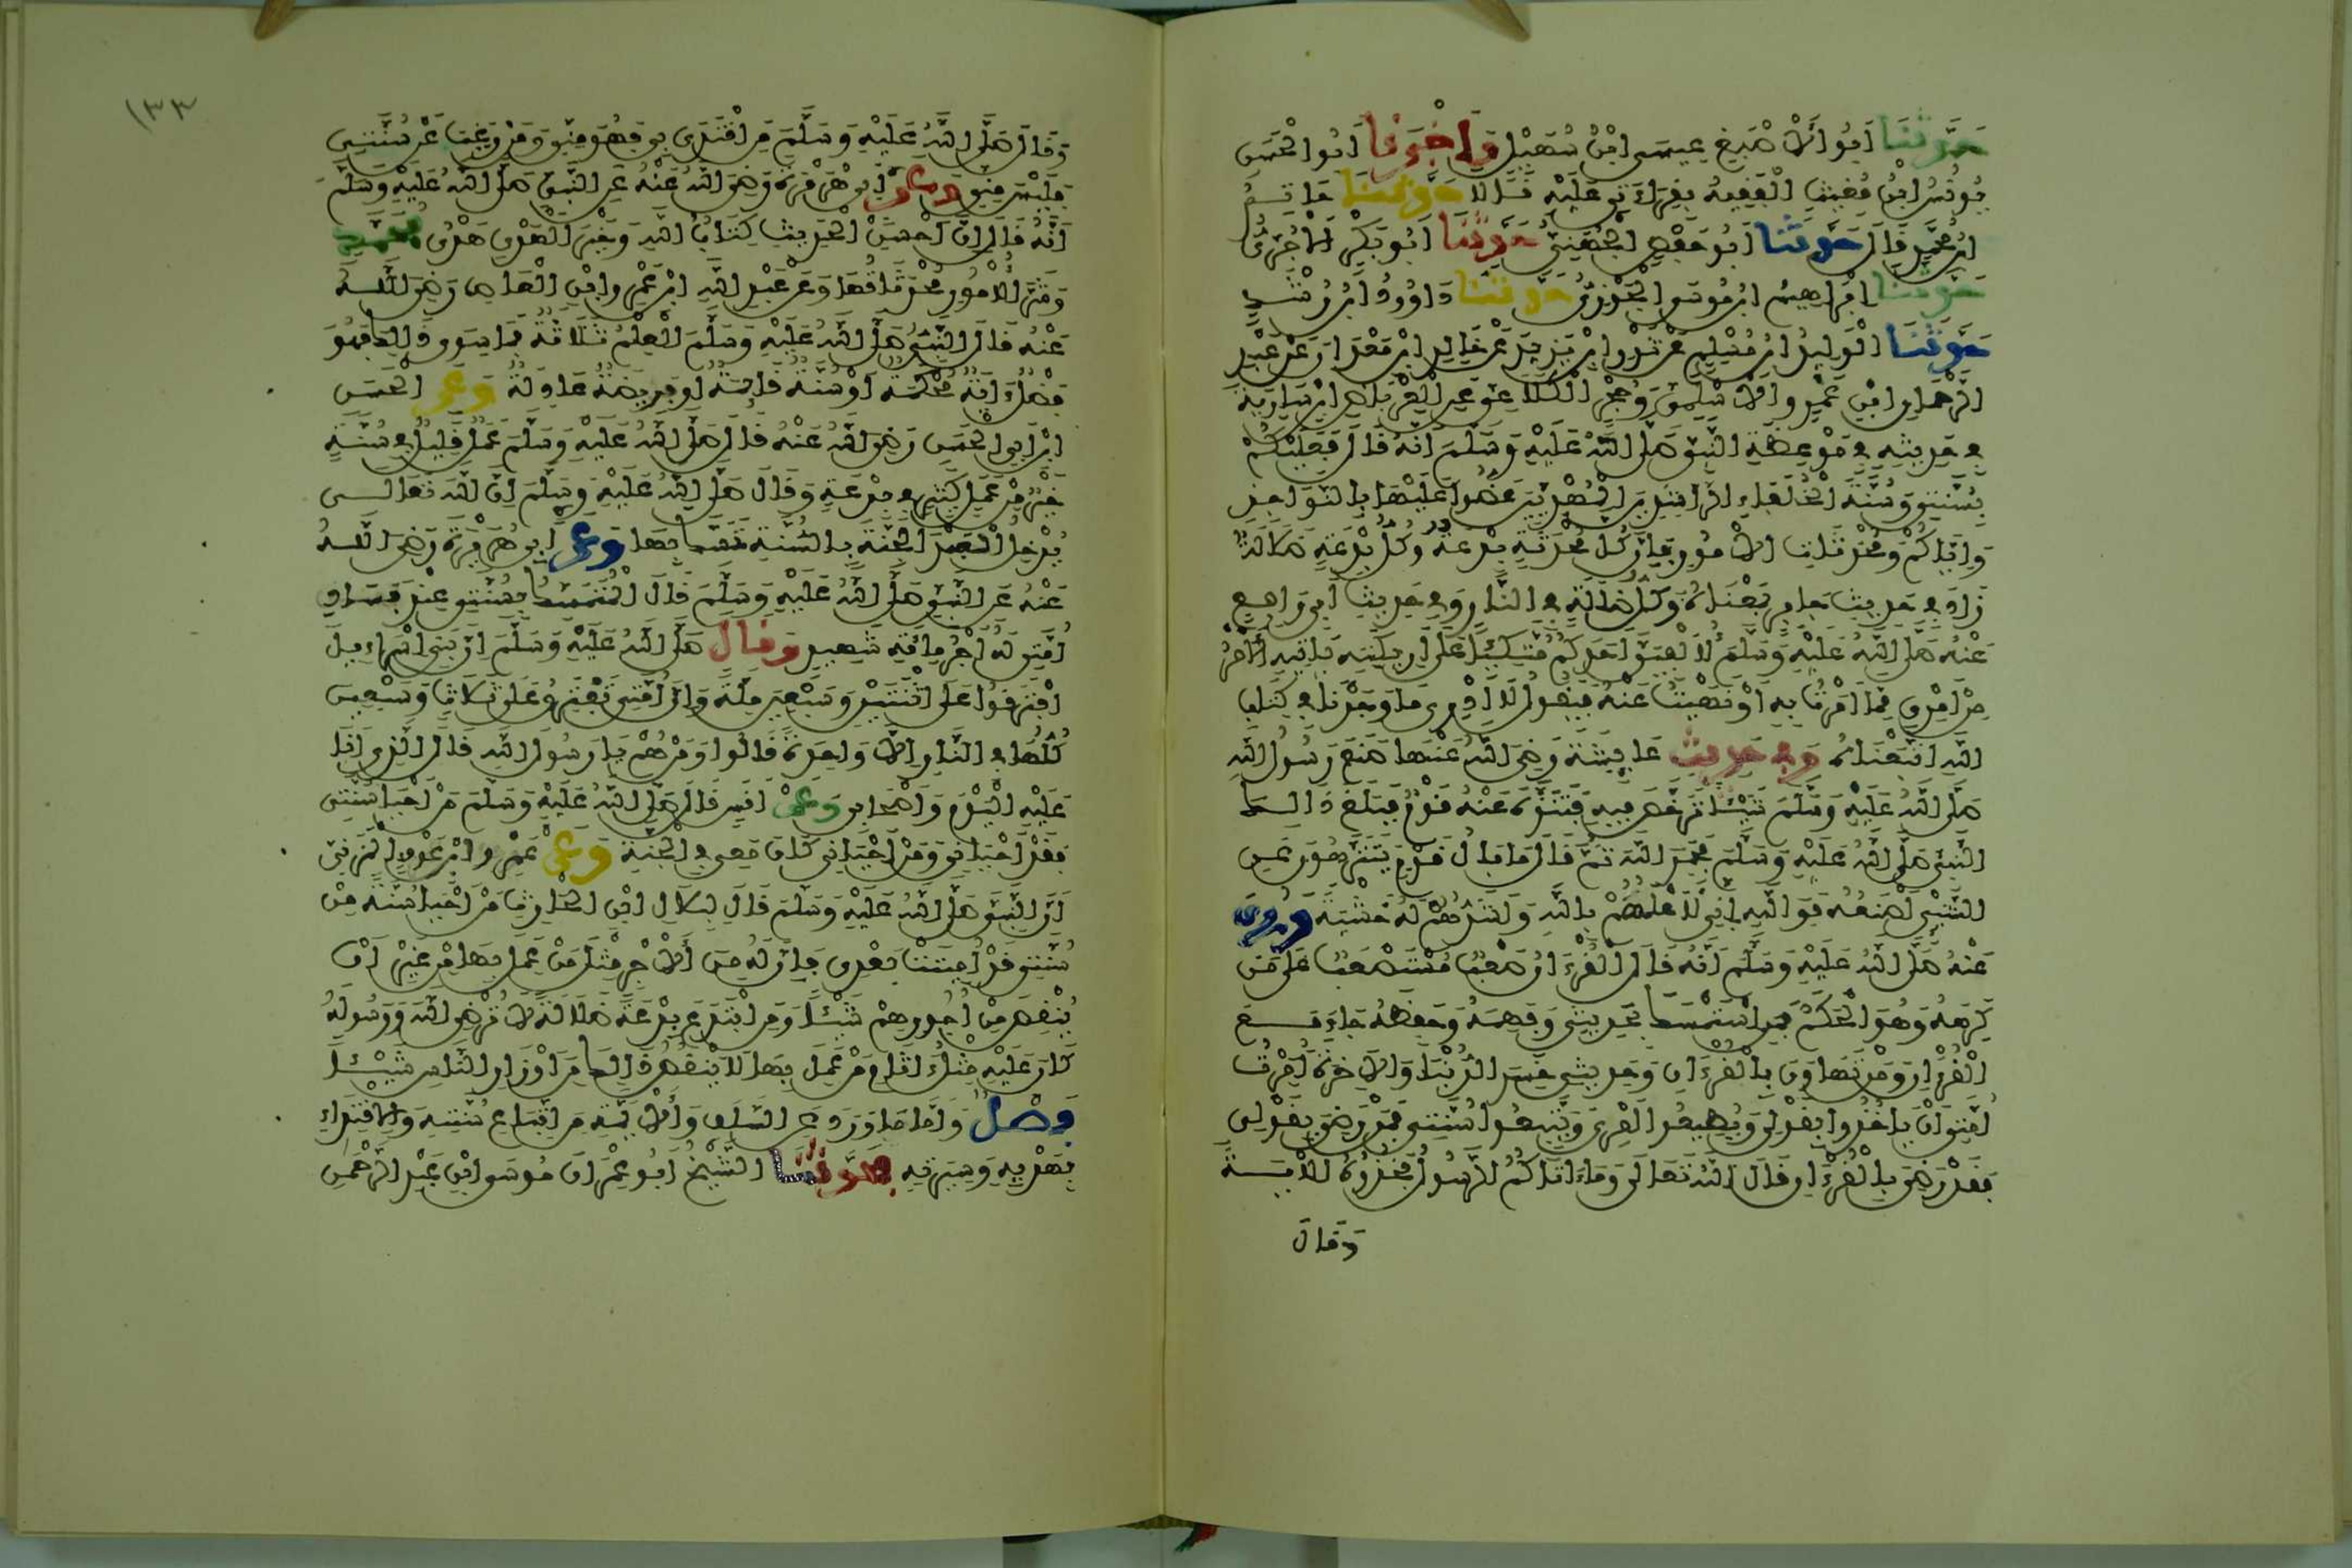 حَدَّثَنَا أَبُو الْأَصْبَغِ عِيسَى ابْنُ سُهَيْلٍ وَأَخْبَرَنَا أَبُو الْحَسَنِ
يُونُسُ ابْنُ مُغِيثٍ الْفَقِيهُ بِقِرَاءَتِي عَلَيْهِ قَالَا حَدَّثَنَا حَاتِمُ
ابْنُ مُحَمَّدٍ قَالَ حَدَّثَنَا أَبُو حَفْصٍ الْجُهَنِيُّ حَدَّثَنَا أَبُو بَكْرٍ الْآجُرِّيُّ
حَدَّثَنَا إِبْرَاهِيمُ ابْنُ مُوسَى الْجَوْزِيُّ حَدَّثَنَا دَاوُودُ ابْنُ رُشَيْدٍ
حَدَّثَنَا الْوَلِيدُ ابْنُ مُسْلِمٍ عَنْ ثَوْرِ ابْنِ يَزِيدَ عَنْ خَالِدِ ابْنِ مَعْدَانَ عَنْ عَبْدِ
الرَّحْمَانِ ابْنِ عَمْرٍو الْأَسْلَمِيِّ وَحُجْرٍ الْكَلَاعِيِّ عَنِ الْعِرْبَاضِ ابْنِ سَارِيَةَ
فِي حَدِيثِهِ فِي مَوْعِظَةِ النَّبِيِّ صَلَّى اللَّهُ عَلَيْهِ وَسَلَّمَ أَنَّهُ قَالَ فَعَلَيْكُمْ
بِسُنَّتِي وَسُنَّةِ الْخُلَفَاءِ الرَّاشِدِينَ الْمَهْدِيِّينَ عَضُّوا عَلَيْهَا بِالنَّوَاجِذِ
وَإِيَّاكُمْ وَمُحْدَثَاتِ الْأُمُورِ فَإِنَّ كُلَّ مُحْدَثَةٍ بِدْعَةٌ وَكُلُّ بِدْعَةٍ ضَلَالَةٌ
زَادَ فِي حَدِيثِ جَابِرٍ بِمَعْنَاهُ وَكُلُّ ضَلَالَةٍ فِي النَّارِ وَفِي حَدِيثِ أَبِي رَافِعٍ
عَنْهُ صَلَّى اللَّهُ عَلَيْهِ وَسَلَّمَ لَا أُلْفِيَنَّ أَحَدَكُمْ مُتَّكِئًا عَلَى أَرِيكَتِهِ يَأْتِيهِ الْأَمْرُ
مِنْ أَمْرِي مِمَّا أَمَرْتُ بِهِ أَوْ نَهَيْتُ عَنْهُ فَيَقُولُ لَا أَدْرِي مَا وَجَدْنَا فِي كِتَابِ
اللَّهِ اتَّبَعْنَاهُ وَفِي حَدِيثِ عَائِشَةَ رَضِيَ اللَّهُ عَنْهَا صَنَعَ رَسُولُ اللَّهِ
صَلَّى اللَّهُ عَلَيْهِ وَسَلَّمَ شَيْئًا تَرَخَّصَ فِيهِ فَتَنَزَّهَ عَنْهُ قَوْمٌ فَبَلَغَ ذَالِكَ
النَّبِيَّ صَلَّى اللَّهُ عَلَيْهِ وَسَلَّمَ فَحَمِدَ اللَّهَ ثُمَّ قَالَ مَا بَالُ قَوْمٍ يَتَنَزَّهُونَ عَنِ
الشَّيْءِ أَصْنَعُهُ فَوَاللَّهِ إِنِّي لَأَعْلَمُهُمْ بِاللَّهِ وَأَشَدُّهُمْ لَهُ خَشْيَةً وَرُوِيَ
عَنْهُ صَلَّى اللَّهُ عَلَيْهِ وَسَلَّمَ أَنَّهُ قَالَ الْقُرْءَانُ صَعْبٌ مُسْتَصْعَبٌ عَلَى مَنْ
كَرِهَهُ وَهُوَ الْحَكَمُ فَمَنِ اسْتَمْسَكَ بِحَدِيثِي وَفَهِمَهُ وَحَفِظَهُ جَاءَ مَعَ
الْقُرْءَانِ وَمَنْ تَهَاوَنَ بِالْقُرْءَانِ وَحَدِيثِي خَسِرَ الدُّنْيَا وَالْآخِرَةَ أُمِرَتْ
أُمَّتِي أَنْ يَأْخُذُوا بِقَوْلِي وَيُطِيعُوا أَمْرِي وَيَتَّبِعُوا سُنَّتِي فَمَنْ رَضِيَ بِقَوْلِي
فَقَدْ رَضِيَ بِالْقُرْءَانِ قَالَ اللَّهُ تَعَالَى وَمَا ءَاتَاكُمُ الرَّسُولُ فَخُذُوهُ الْآيَةَ
وَقَالَ
١٣٣
وَقَالَ صَلَّى اللَّهُ عَلَيْهِ وَسَلَّمَ مَنِ اقْتَدَى بِي فَهُوَ مِنِّي وَمَنْ رَغِبَ عَنْ سُنَّتِي
فَلَيْسَ مِنِّي وَعَنْ أَبِي هُرَيْرَةَ رَضِيَ اللَّهُ عَنْهُ عَنِ النَّبِيِّ صَلَّى اللَّهُ عَلَيْهِ وَسَلَّمَ
أَنَّهُ قَالَ إِنَّ أَحْسَنَ الْحَدِيثِ كِتَابُ اللَّهِ وَخَيْرَ الْهَدْيِ هَدْيُ مُحَمَّدٍ
وَشَرَّ الْأُمُورِ مُحْدَثَاتُهَا وَعَنْ عَبْدِ اللَّهِ ابْنِ عَمْرِو ابْنِ الْعَاصِ رَضِيَ اللَّهُ
عَنْهُ قَالَ النَّبِيُّ صَلَّى اللَّهُ عَلَيْهِ وَسَلَّمَ الْعِلْمُ ثَلَاثَةٌ فَمَا سِوَى ذَالِكَ فَهُوَ
فَضْلٌ ءَايَةٌ مُحْكَمَةٌ أَوْ سُنَّةٌ قَائِمَةٌ أَوْ فَرِيضَةٌ عَادِلَةٌ وَعَنِ الْحَسَنِ
ابْنِ أَبِي الْحَسَنِ رَضِيَ اللَّهُ عَنْهُ قَالَ صَلَّى اللَّهُ عَلَيْهِ وَسَلَّمَ عَمَلٌ قَلِيلٌ فِي سُنَّةٍ
خَيْرٌ مِنْ عَمَلٍ كَثِيرٍ فِي بِدْعَةٍ وَقَالَ صَلَّى اللَّهُ عَلَيْهِ وَسَلَّمَ إِنَّ اللَّهَ تَعَالَى
يُدْخِلُ الْعَبْدَ الْجَنَّةَ بِالسُّنَّةِ تَمَسَّكَ بِهَا وَعَنْ أَبِي هُرَيْرَةَ رَضِيَ اللَّهُ
عَنْهُ عَنِ النَّبِيِّ صَلَّى اللَّهُ عَلَيْهِ وَسَلَّمَ قَالَ الْمُتَمَسِّكُ بِسُنَّتِي عِنْدَ فَسَادِ
أُمَّتِي لَهُ أَجْرُ مِائَةِ شَهِيدٍ وَقَالَ صَلَّى اللَّهُ عَلَيْهِ وَسَلَّمَ إِنَّ بَنِي إِسْرَاءِيلَ
افْتَرَقُوا عَلَى اثْنَتَيْنِ وَسَبْعِينَ مِلَّةً وَإِنَّ أُمَّتِي تَفْتَرِقُ عَلَى ثَلَاثٍ وَسَبْعِينَ
كُلُّهَا فِي النَّارِ إِلَّا وَاحِدَةً قَالُوا وَمَنْ هُمْ يَا رَسُولَ اللَّهِ قَالَ الَّذِي أَنَا
عَلَيْهِ الْيَوْمَ وَأَصْحَابِي وَعَنْ أَنَسٍ قَالَ صَلَّى اللَّهُ عَلَيْهِ وَسَلَّمَ مَنْ أَحْيَا سُنَّتِي
فَقَدْ أَحْيَانِي وَمَنْ أَحْيَانِي كَانَ مَعِي فِي الْجَنَّةِ وَعَنْ عَمْرِو ابْنِ عَوْفٍ الْمُزَنِيِّ
أَنَّ النَّبِيَّ صَلَّى اللَّهُ عَلَيْهِ وَسَلَّمَ قَالَ لِبِلَالِ ابْنِ الْحَارِثِ مَنْ أَحْيَا سُنَّةً مِنْ
سُنَّتِي قَدْ أُمِيتَتْ بَعْدِي فَإِنَّ لَهُ مِنَ الْأَجْرِ مِثْلَ مَنْ عَمِلَ بِهَا مِنْ غَيْرِ أَنْ
يُنْقَصَ مِنْ أُجُورِهِمْ شَيْئًا وَمَنِ ابْتَدَعَ بِدْعَةً ضَلَالَةً لَا تُرْضِي اللَّهَ وَرَسُولَهُ
كَانَ عَلَيْهِ مِثْلُ ءَاثَامِ مَنْ عَمِلَ بِهَا لَا يَنْقُصُ ذَالِكَ مِنْ أَوْزَارِ النَّاسِ شَيْئًا
فَصْلٌ وَأَمَّا مَا وَرَدَ عَنِ السَّلَفِ وَالْأَئِمَّةِ مِنِ اتِّبَاعِ سُنَّتِهِ وَالِاقْتِدَاءِ
بِهَدْيِهِ وَسِيرَتِهِ فَحَدَّثَنَا الشَّيْخُ أَبُو عِمْرَانَ مُوسَى ابْنُ عَبْدِ الرَّحْمَنِ